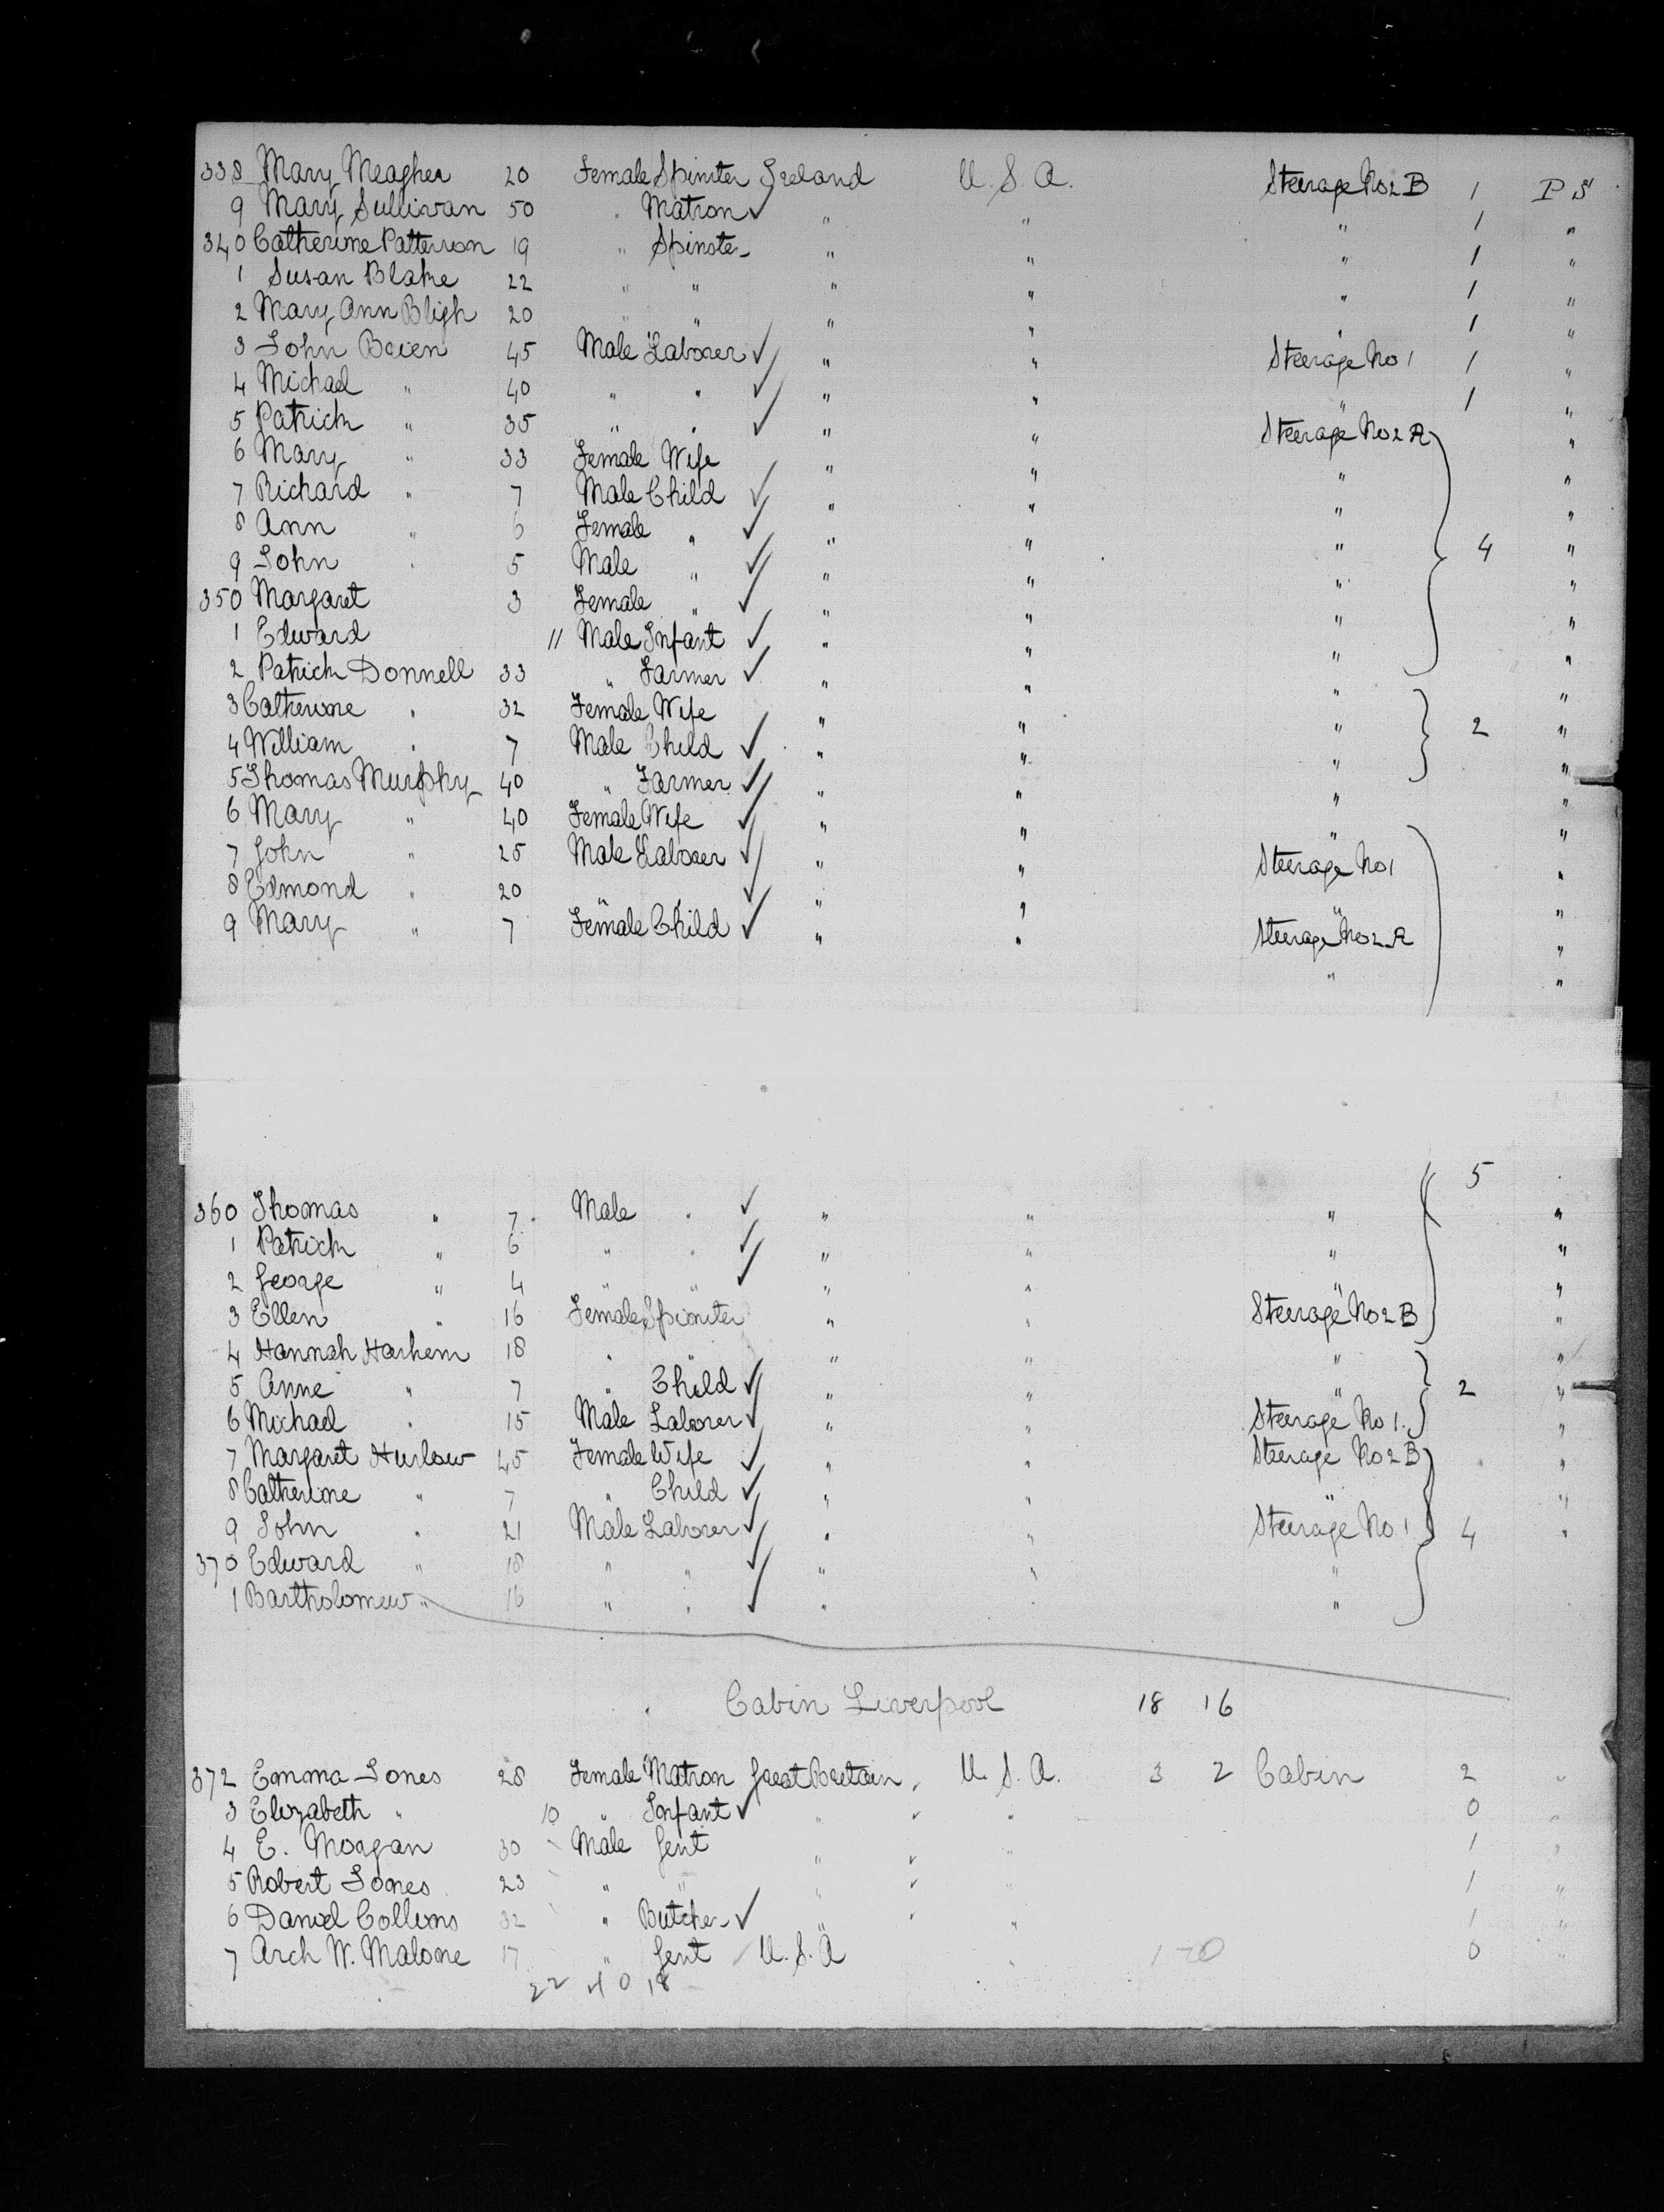 338 Mary Meagher 20 Female Spinster Ireland U. S. A. Steerage No 2 B 1 P S
9 Mary Sullivan 50 " Matron ✓ " " " 1 "
340 Catherine Patterson 19 " Spinster " " " 1 "
1 Susan Blake 22 " " " " " 1 "
2 Mary Ann Bligh 20 " " " " " 1 "
3 John Brien 45 Male Laborer ✓ " " Steerage No 1 1 "
4 Michael " 40 " " ✓ " " " 1 "
5 Patrick " 35 " " ✓ " " Steerage No 2 A "
6 Mary " 33 Female Wife " " " "
7 Richard " 7 Male Child ✓ " " " "
8 Ann " 6 Female " ✓ " " " 4 "
9 John " 5 Male " ✓ " " " "
350 Margaret 3 Female " ✓ " " " "
1 Edward 11 Male Infant ✓ " " " "
2 Patrick Donnell 33 " Farmer ✓ " " " "
3 Catherine " 32 Female Wife " " " 2 "
4 William " 7 Male Child ✓ " " " "
5 Thomas Murphy 40 " Farmer ✓ " " " "
6 Mary " 40 Female Wife ✓ " " " "
7 John " 25 Male Laborer ✓ " " Steerage No 1 "
8 Edmond " 20 " " ✓ " " " "
9 Mary " 7 Female Child ✓ " " Steerage No 2 A "
" "
5
360 Thomas " 7 Male " ✓ " " " "
1 Patrick " 6 " " ✓ " " " "
2 George " 4 " " ✓ " " " "
3 Ellen " 16 Female Spinster " " Steerage No 2 B "
4 Hannah Harhem 18 " " " " " "
5 Anne " 7 " Child ✓ " " " 2 "
6 Michael " 15 Male Laborer ✓ " " Steerage No 1. "
7 Margaret Hurlow 45 Female Wife ✓ " " Steerage No 2 B "
8 Catherine " 7 " Child ✓ " " " "
9 John " 21 Male Laborer ✓ " " Steerage No. 1 4 "
370 Edward " 18 " " ✓ " " "
1 Bartholomew " 16 " " ✓ " " "
Cabin Liverpool 18 16
372 Emma Jones 28 Female Matron Great Britain U. S. A. 3 2 Cabin 2 "
3 Elizabeth " 10 " Infant ✓ " " 0 "
4 E. Morgan 30 Male Gent " " 1 "
5 Robert Jones 23 " " " " 1 "
6 Daniel Collins 32 " Butcher ✓ " " 1 "
7 Arch W. Malone 17 " Gent U. S. A " 1 0 0 "
22 40 18